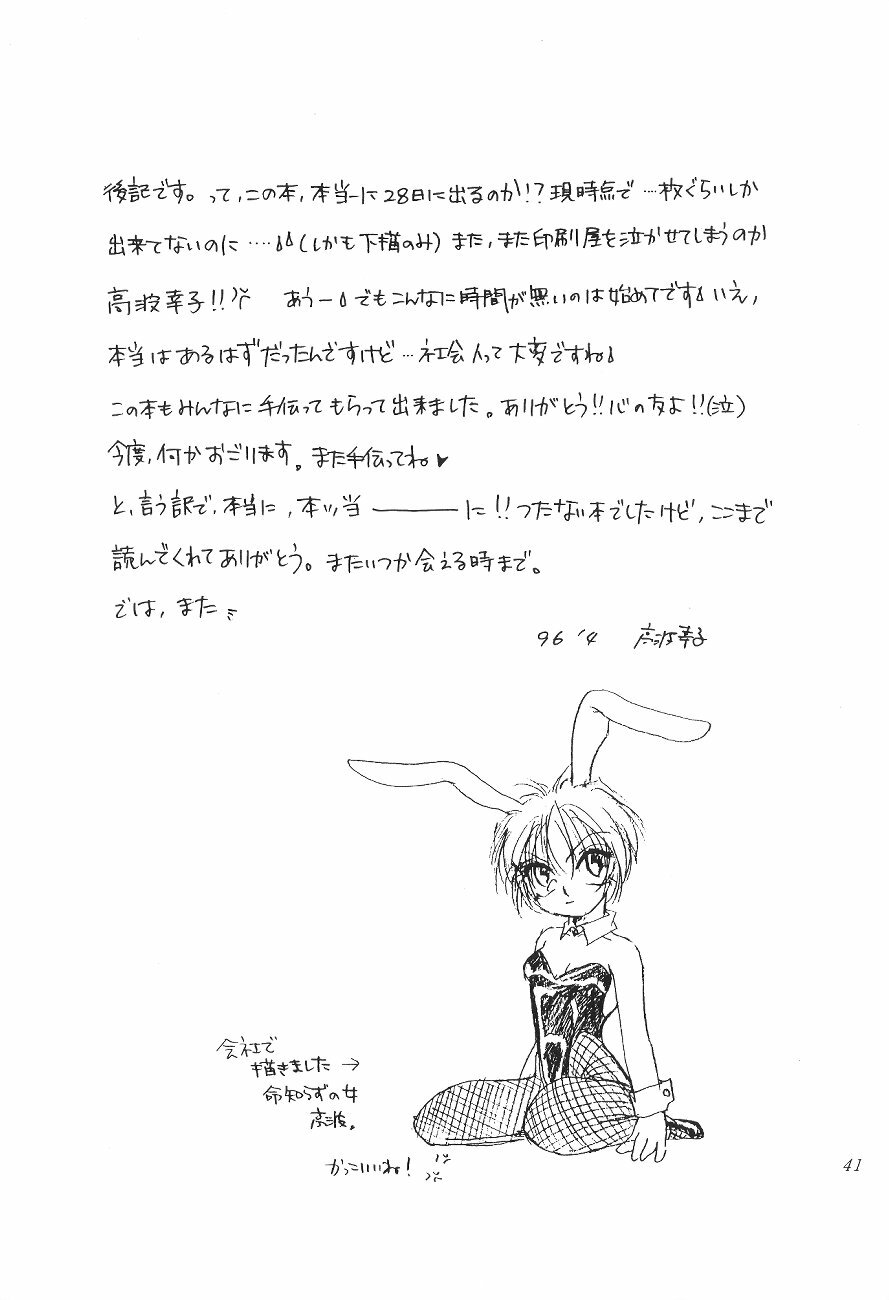 後記です。って、この本、本当に28日に出るのか!?現時点で…枚ぐらいしか
出来てないのに……(しかも下描のみ)また、また印刷屋を泣かせてしまうのか
高波幸子!! あうーでもこんなに時間が無いのは始めてですいえ、
本当はあるはずだったんですけど…社会人って大変ですね
この本もみんなに手伝ってもらって出来ました。ありがとう!!心の友よ!!(泣)
今度、何かおごります。また手伝ってね♥
と、言う訳で、本当に、本ッ当――――に!!つたない本でしたけど、ここまで
読んでくれてありがとう。またいつか会える時まで。
では、また
96 '4 高波幸子
会社で
描きました→
命知らずの女
高波。
かっこいいね!
41